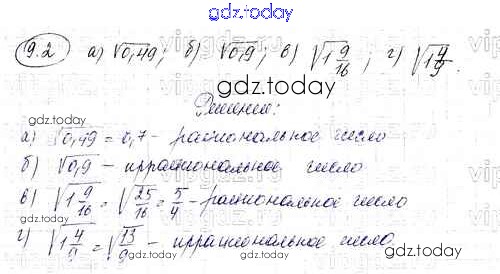 gdz.today
9.2 а) √0,49; б) √0,9; в) √1 9/16; г) √1 4/9.
gdz.today
Решение:
а) √0,49 = 0,7 - рациональное число
б) √0,9 - иррациональное число
в) √1 9/16 = √25/16 = 5/4 - рациональное число
г) √1 4/9 = √13/9 - иррациональное число
gdz.today